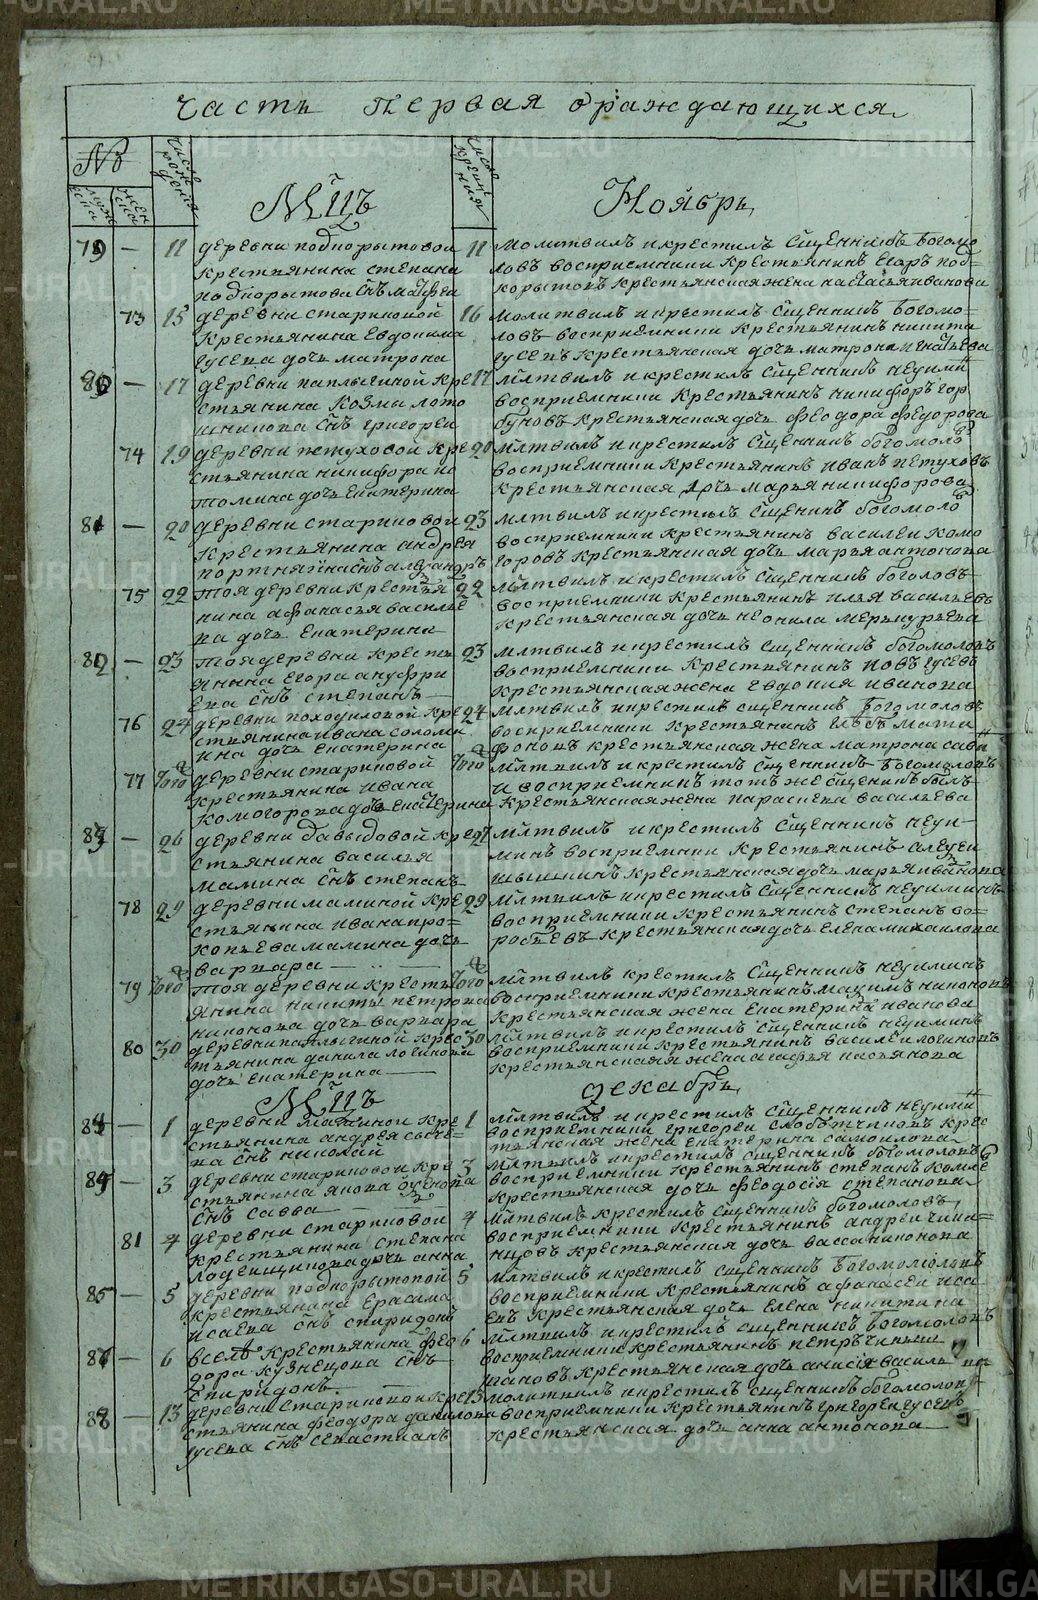 METRIKI.GASO-URAL.RU
Часть Первая ораждающихся
№
Числа рождения
Числа крещения
Мцъ
Ноябрь
79 — 11 деревни подкорытовой
крестьянина степана
подкорытова снъ матфеи
11 молитвилъ икрестилъ сщенникъ богомо
ловъ восприемники крестьянинъ егоръ под=
корытовъ крестьянская жена настасья иванова
73 15 деревни стариковой
крестьянина евдокима
гусева дочь матрона
16 молитвилъ икрестилъ сщенникъ богомо=
ловъ восприемники крестьянинъ никита
гусевъ крестьянская дочь матрона игнатьева
80 — 17 деревни паклыгиной кре
стьянина козмы
снъ григореи
17 млтвилъ икрестилъ сщенникъ неуими
восприемники крестьянинъ никифоръ гор
буновъ крестьянская дочь феодора федорова
74 19 деревни петуховой кре
стьянина никифора
дочь екатерина
20 млтвилъ икрестилъ сщенникъ богомоло
восприемники крестьянинъ иванъ петуховъ
крестьянская дочь марья никифорова
81 — 20 деревни стариковои
крестьянина андрея
портнягина снъ александръ
23 млтвилъ икрестилъ сщенникъ богомоло
восприемники крестьянинъ василеи комо
горовъ крестьянская дочь марья антонова
75 22 тоя деревни крестья
нина афанасья василье
ва дочь екатерина
22 млтвилъ икрестилъ сщенникъ боголовъ
восприемники крестьянинъ илья васильевъ
крестьянская дочь неонила меркурьева
82 — 23 тоя деревни кресть
янина егора ануфри
ева снъ степанъ
23 млтвилъ икрестилъ сщенникъ богомоловъ
восприемники крестьянинъ иовъ гусевъ
крестьянская жена евдокия иванова
76 24 деревни походиловой кре
стьянина ивана соломи
ина дочь екатерина
24 млтвилъ икрестилъ сщенникъ богомоловъ
восприемники крестьянинъ глебъ мати
фоновъ крестьянская жена матрона сави
77 того деревни стариковой
крестьянина ивана
комогорова дочь екатерина
того млтвилъ икрестилъ сщенникъ богомоловъ
и восприемникъ тотъ же сщенникъ былъ
крестьянская жена параскева васильева
83 — 26 деревни давыдовой кре
стьянина василья
мамина снъ степанъ
27 млтвилъ икрестилъ сщенникъ неуи
минъ восприемники крестьянинъ алексеи
крестьянская дочь марья иванова
78 29 деревни маминой кре
стьянина ивана про=
копьева мамина дочь
варвара
29 млтвилъ икрестилъ сщенникъ неуиминъ
восприемники крестьянинъ степанъ во=
робьевъ крестьянская дочь елена михаилова
79 того тоя деревни кресть
янина никиты петрова
дочь варвара
того млтвилъ крестилъ сщенникъ неуиминъ
восприемники крестьянинъ максимъ
крестьянская жена екатерина иванова
80 30 деревни паклыгиной крес
тьянина данила логинова
дочь екатерина
30 млтвилъ икрестилъ сщенникъ неуиминъ
восприемники крестьянинъ василеи логиновъ
крестьянская жена агафья касьянова
Мцъ
декабрь
84 — 1 деревни маминои кре
стьянина андрея сысое=
ва снъ николаи
1 млтвилъ икрестилъ сщенникъ неуими
восприемники григореи слободчиковъ крес
тьянская жена екатерина самоилова
3 деревни стариковои кре
стьянина якова
снъ савва
3 млтвилъ икрестилъ сщенникъ богомоловъ
восприемники крестьянинъ степанъ
крестьянская дочь феодосія степанова
81 4 деревни стариковой
крестьянина степана
лоденщикова дочь анна
4 млтвилъ крестилъ сщенникъ богомоловъ
восприемники крестьянинъ андреи
крестьянская дочь васса никонова
85 — 5 деревни подкорытовой
крестьянина ерасима
исаева снъ спиридонъ
5 млтвилъ икрестилъ сщенникъ богомоловъ
восприемники крестьянинъ афанасеи иса
евъ крестьянская дочь елена никитина
— 6 вселъ крестьянина фео
дора кузнецова снъ
спиридонъ
6 млтвилъ икрестилъ сщенникъ богомоловъ
восприемники крестьянинъ петръ
крестьянская дочь анисія василь
88 — 13 деревни стариковои кре
стьянина феодора данилова
гусева снъ севастианъ
13 молитвилъ икрестилъ сщенникъ богомоловъ
восприемники крестьянинъ григореи гусевъ
крестьянская дочь анна антонова
METRIKI.GASO-URAL.RU